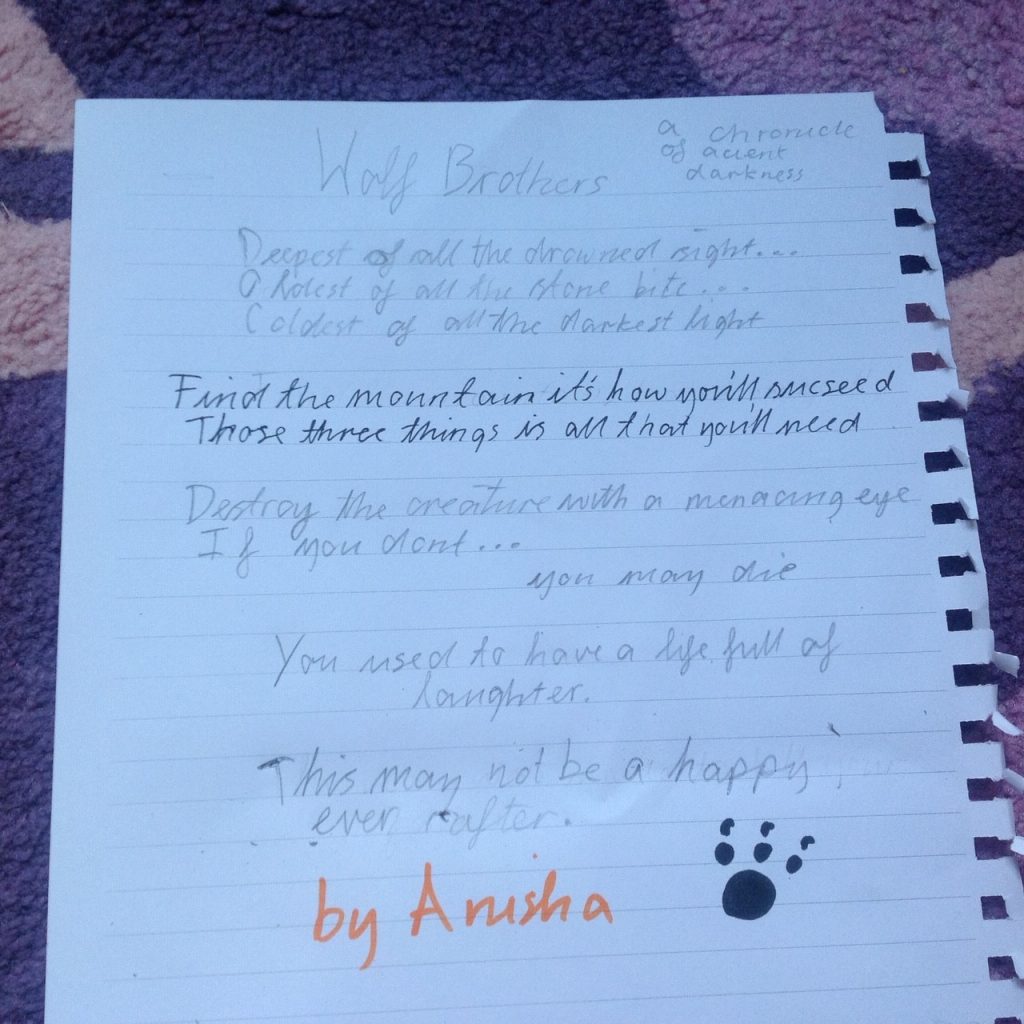 Wolf Brothers
a chronicle
of acient
darkness
Deepest of all the drowned sight...
Oldest of all the stone bite...
Coldest of all the darkest light
Find the mountain it's how you'll sucseed
Those three things is all that you'll need
Destroy the creature with a menacing eye
If you dont...
you may die
You used to have a life full of
laughter.
This may not be a happy
ever after.
by Anusha